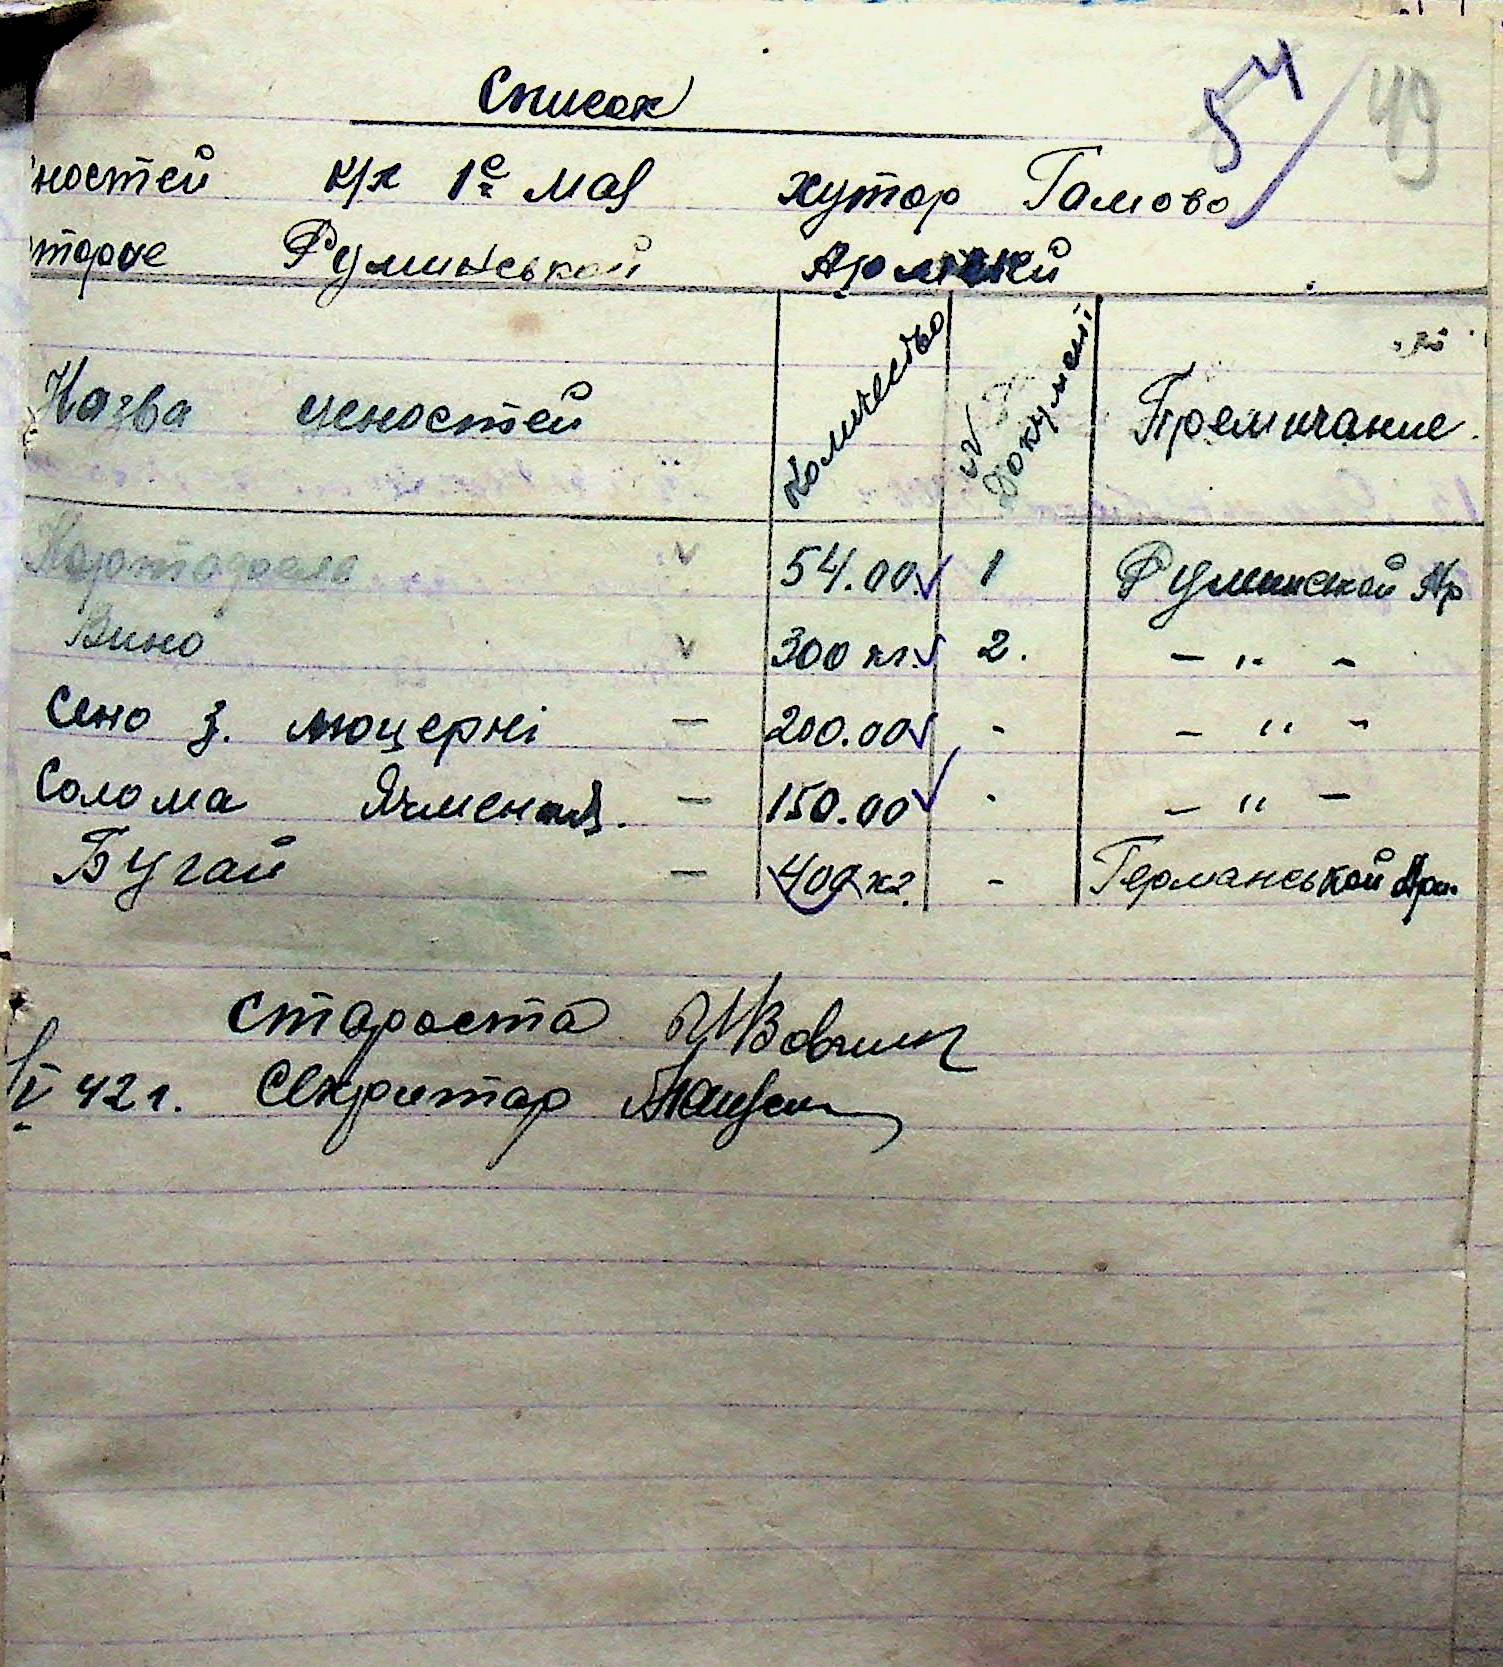 Список
54 49
ностей к/х 1е мая хутор Гамово
тороне Руминськой Армией
Назва ценостей Количество № Документ Премичание
Картофеля v 54.00 v 1 Руминской Ар
Вино v 300 кг. v 2. - " -
Сено з. люцерні - 200.00 v - - " -
Солома Ячмен. - 150.00 v - - " -
Бугай - 400 кг. - Германськой Арм.
Староста
V 42 г. Секритар